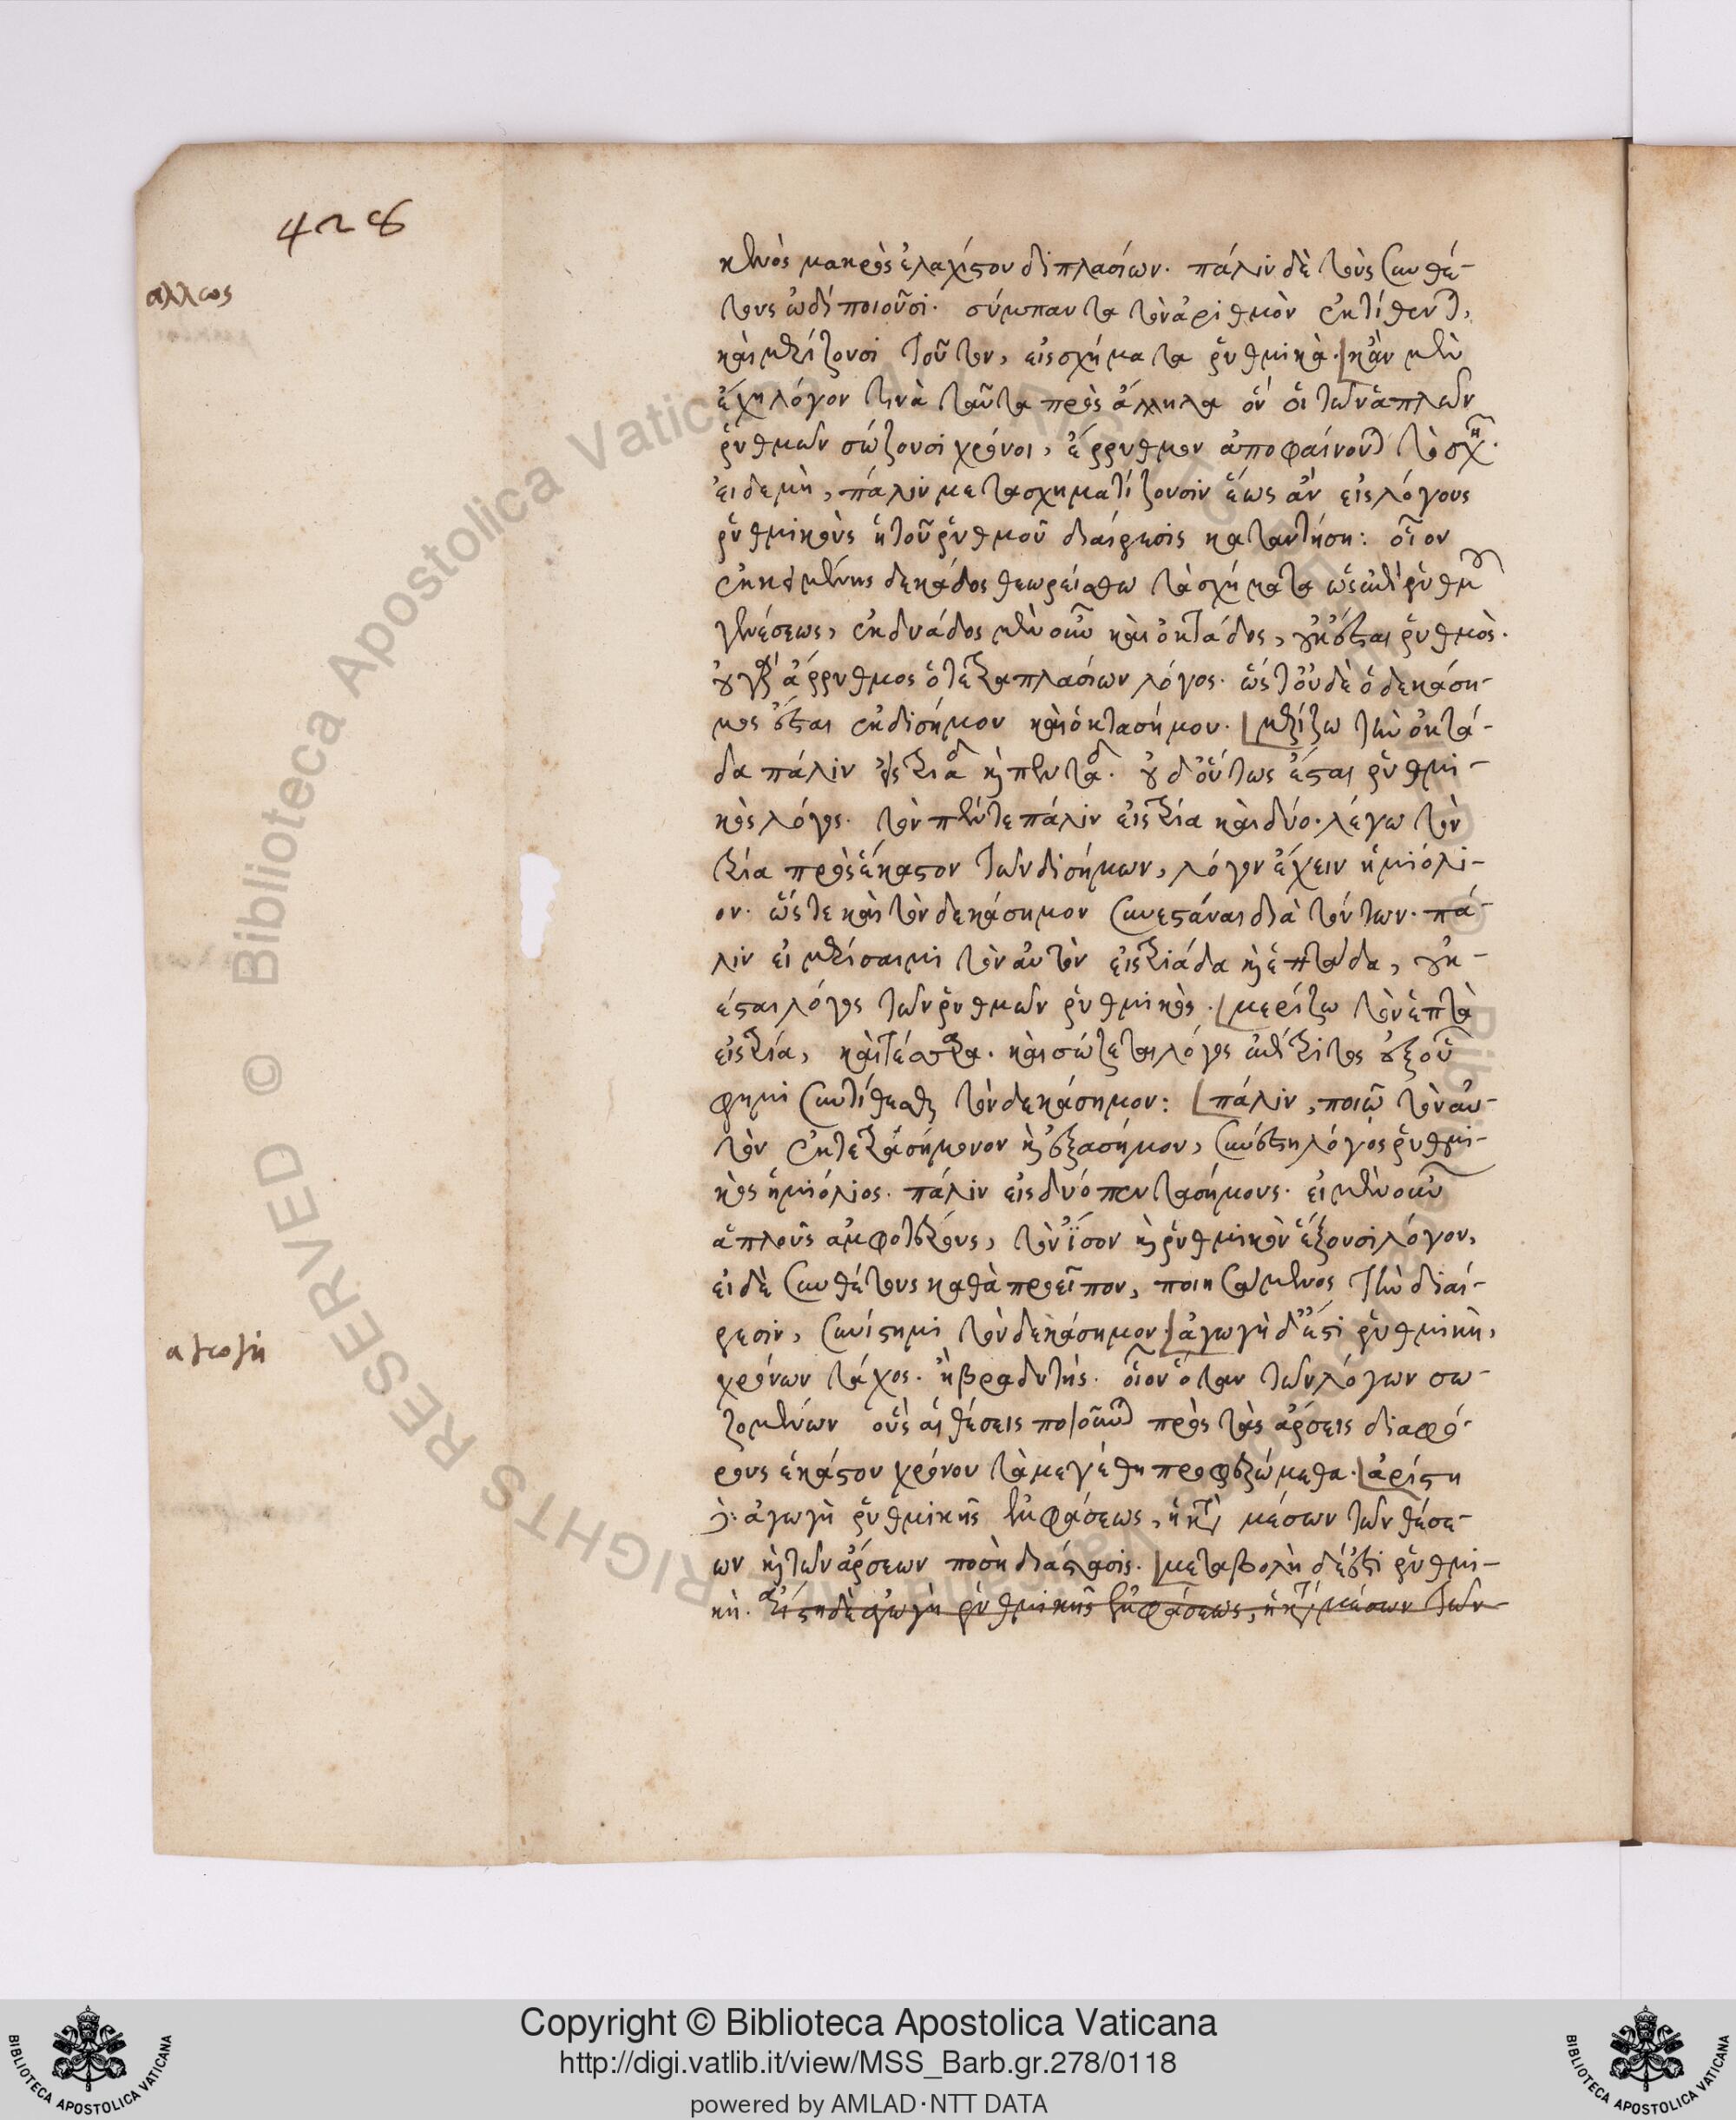 428
αλλως
μενὸς μακρὸς ἐλαχίστου διπλασίων. πάλιν δὲ τοὺς συνθέ-
τους ὡδί ποιοῦσι. σύμπαντα τὸν ἀριθμὸν ἐκτίθενται,
καὶ μερίζουσι τοῦτον, εἰς σχήματα ῥυθμικὰ. κἂν μὲν
ἔχη λόγον τινὰ ταῦτα πρὸς ἄλληλα ὅν οἱ τῶν ἁπλῶν
ῥυθμῶν σώζουσι χρόνοι, ἔρρυθμον ἀποφαίνονται τὸ σχῆ.
εἰ δεμὴ, πάλιν μετασχηματίζουσιν ἕως ἂν εἰς λόγους
ῥυθμικοὺς ἡ τοῦ ῥυθμοῦ διαίρεσις καταντήση: οἷον
δεκάδος θεωρείσθω τὰ σχήματα ὡς ἐπὶ ῥυθμοῦ
γενέσεως, ἐκ δυάδος μὲν οὖν καὶ ὀκτάδος, οὐκ ἔσται ῥυθμὸς.
οὐ γὰρ ἄρρυθμος ὁ τετραπλασίων λόγος. ὥστ' οὐδὲ ὁ δεκάση-
μος ἔσται ἐκ δισήμου καὶ ὀκτασήμου. μερίζω τὴν ὀκτά-
δα πάλιν εἰς τριάδα κὶ πεντάδα. οὐδ' οὕτως ἔσται ῥυθμι-
κὸς λόγος. τὸν πέντε πάλιν εἰς τρία καὶ δύο. λέγω τὸν
τρία πρὸς ἕκαστον τῶν δισήμων, λόγον ἔχειν ἡμιόλι-
ον. ὥστε καὶ τὸν δεκάσημον συνεστάναι διὰ τούτων. πά-
λιν εἰ μερίσαιμι τὸν αὐτὸν εἰς τριάδα κὶ ἑπτάδα, οὐκ-
έσται λόγος τῶν ῥυθμῶν ῥυθμικὸς. μερίζω τὸν ἑπτὰ
εἰς τρία, καὶ τέσσαρα. καὶ σώζεται λόγος ἐπίτριτος ἐξ οὗ
φημι συντίθεσθαι τὸν δεκάσημον: πάλιν, ποιῶ τὸν αὐ-
τὸν ἐκ τετρασήμονον κὶ ἑξασήμου, συνέστη λόγος ῥυθμι-
κὸς ἡμιόλιος. πάλιν εἰς δυό πεντασήμους. εἰ μὲν οὖν
ἁπλοῦς ἀμφοτέρους, τὸν ἴσον κὶ ῥυθμικὸν ἕξουσι λόγον,
εἰ δὲ συνθέτους καθὰ προεῖπον, ποιησάμενος τὴν διαί-
ρεσιν, συνίστημι τὸν δεκάσημον. ἀγωγὴ δ' ἔστι ῥυθμικὴ,
αγωγή
χρόνων τάχος. ἢ βραδυτής. οἷον ὅταν τῶν λόγων σω-
ζομένων οὓς αἱ θέσεις ποιοῦνται πρὸς τὰς ἄρσεις διαφό-
ρους ἑκάστου χρόνου τὰ μεγέθη προφερώμεθα. ἀρίστη
δὲ ἀγωγὴ ῥυθμικῆς ἐμφάσεως, ἡ κατὰ μέσων τῶν θέσε-
ων κὶ τῶν ἄρσεων ποσὴ διάστασις. μεταβολὴ δέ ἐστι ῥυθμι-
κὴ. ἀρίστη δὲ ἀγωγὴ ῥυθμικῆς ἐμφάσεως, ἡ κατὰ μέσων τῶν
Copyright © Biblioteca Apostolica Vaticana
http://digi.vatlib.it/view/MSS_Barb.gr.278/0118
powered by AMLAD·NTT DATA
BIBLIOTECA APOSTOLICA VATICANA
BIBLIOTECA APOSTOLICA VATICANA